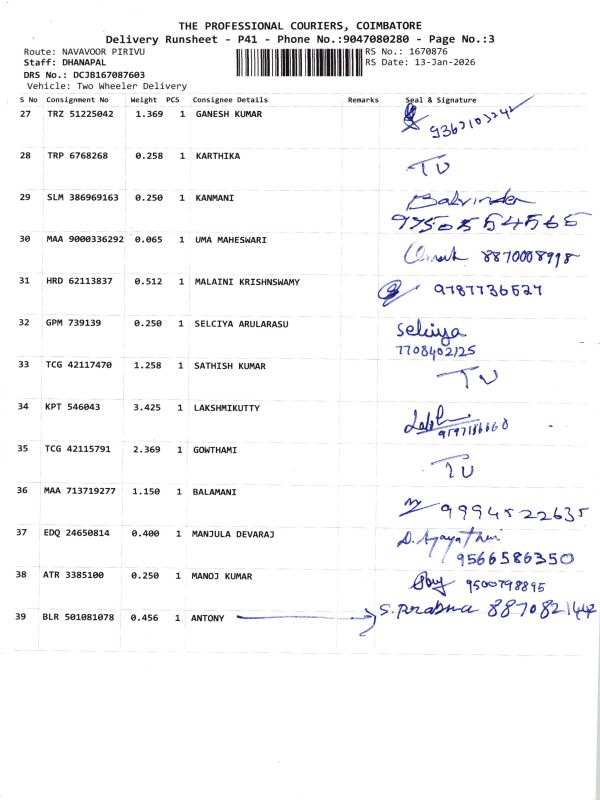 THE PROFESSIONAL COURIERS, COIMBATORE
Delivery Runsheet - P41 - Phone No.:9047080280 - Page No.:3
Route: NAVAVOOR PIRIVU RS No.: 1670876
Staff: DHANAPAL RS Date: 13-Jan-2026
DRS No.: DCJB167087603
Vehicle: Two Wheeler Delivery
S No Consignment No Weight PCS Consignee Details Remarks Seal & Signature
27 TRZ 51225042 1.369 1 GANESH KUMAR
28 TRP 6768268 0.258 1 KARTHIKA TU
29 SLM 386969163 0.250 1 KANMANI Balvinder
9750554565
30 MAA 9000336292 0.065 1 UMA MAHESWARI 8870008998
31 HRD 62113837 0.512 1 MALAINI KRISHNSWAMY 9787736527
32 GPM 739139 0.250 1 SELCIYA ARULARASU Selciya
7708402125
33 TCG 42117470 1.258 1 SATHISH KUMAR TU
34 KPT 546043 3.425 1 LAKSHMIKUTTY
35 TCG 42115791 2.369 1 GOWTHAMI TU
36 MAA 713719277 1.150 1 BALAMANI 9994522635
37 EDQ 24650814 0.400 1 MANJULA DEVARAJ
9566586350
38 ATR 3385100 0.250 1 MANOJ KUMAR 9500798895
39 BLR 501081078 0.456 1 ANTONY S. 8870821442